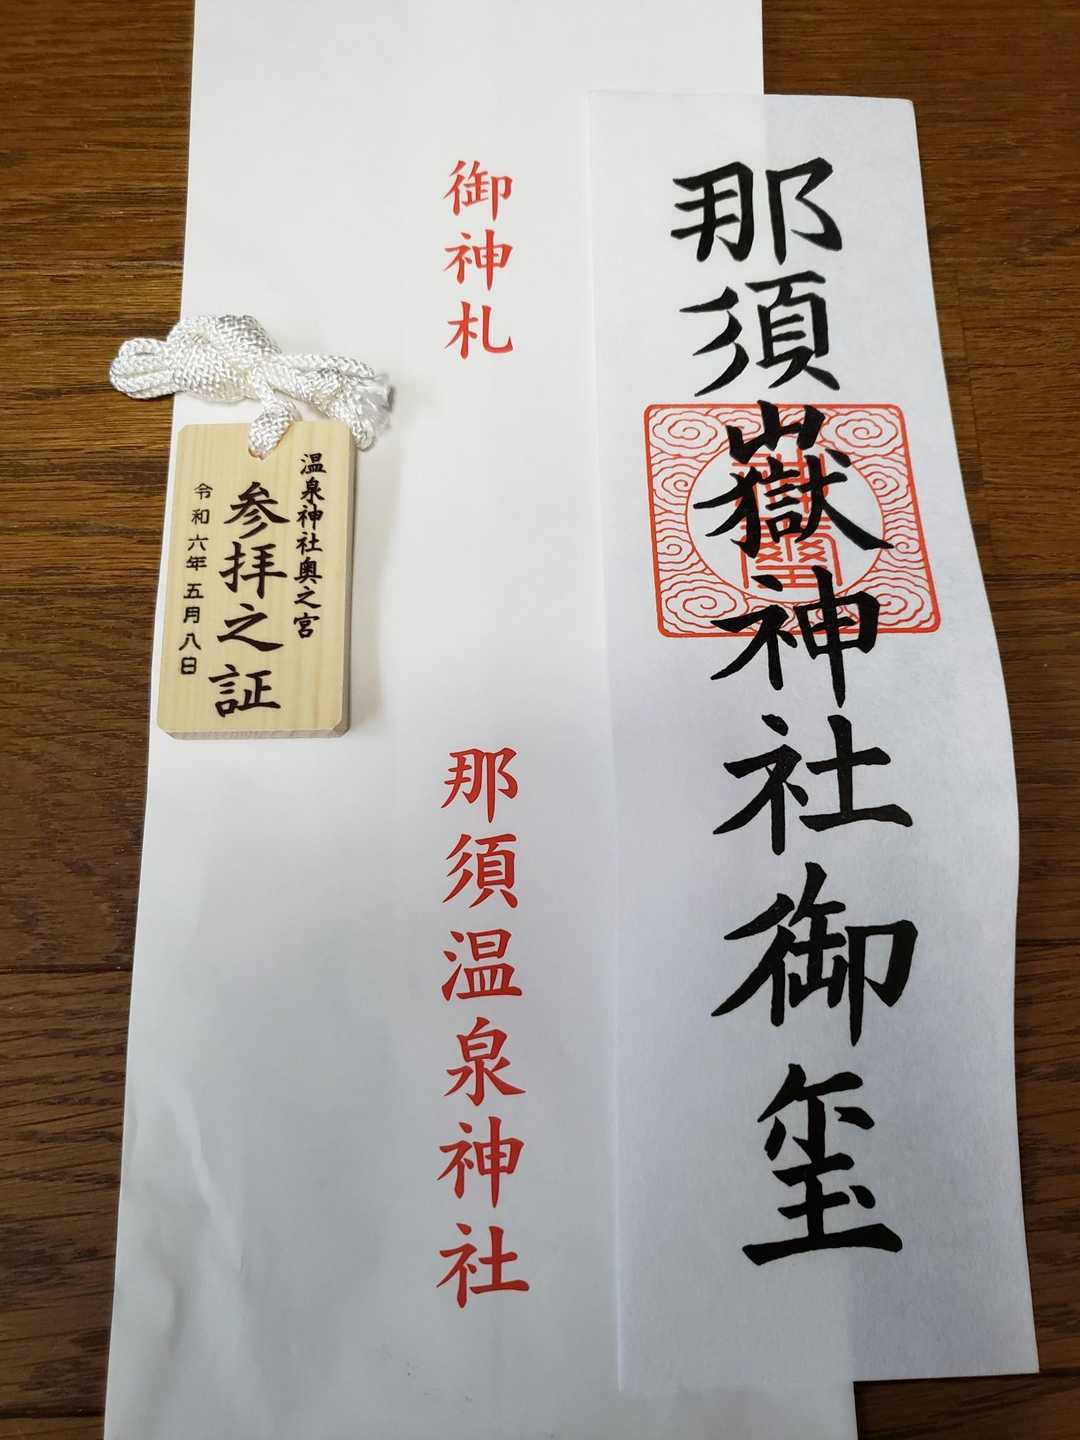 那須嶽神社御璽
御神札
那須温泉神社
温泉神社奥之宮
参拝之証
令和六年五月八日